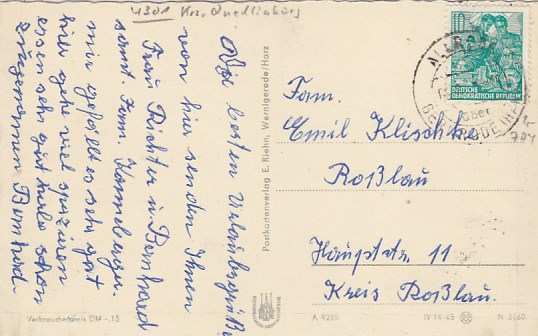 4301 Krs. Quedlinburg
Die besten Urlaubsgrüße
von hier senden Ihnen
Frau Richter u. Bernhard
sowt. Fam.
mir gefällt es sehr gut
hier gehe viel spazieren
essen sehr gut habe schon
zugenommen Bernhard
Verbraucherpreis DM -.15
Postkartenverlag E. Riehn, Wernigerode/Harz
10
DEUTSCHE
DEMOKRATISCHE REPUBLIK
über
Fam.
Emil Klischke
Roßlau
Hauptstr. 11
Kreis Roßlau
A 9255 IV-14-45 N 3/60